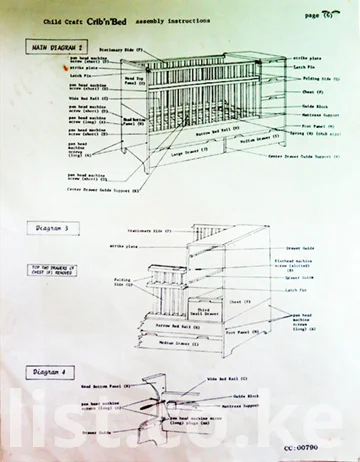 Child Craft Crib'n'Bed assembly instructions
page (6)
MAIN DIAGRAM 2
Stationary Side (F)
pan head machine
screw (short) (D)
strike plate
Latch Pin
pan head machine
screw (short) (D)
Wide Bed Rail (C)
pan head machine
screw (short) (D)
pan head machine
screw (long) (A)
pan head machine
screw (short) (D)
pan head
machine
screws
(long) (A)
pan head machine
screw (short) (D)
Center Drawer Guide Support (K)
Head Top
Panel
Head Bottom
Panel (H)
Narrow Bed Rail (H)
Large Drawer (J)
Medium Drawer (I)
strike plate
Latch Pin
Folding Side (G)
Chest (F)
Guide Block
Mattress Support
Post Panel (M)
Spring (N) (crib size)
Center Drawer Guide Support (K)
Diagram 3
TOP TWO DRAWERS OF
CHEST (F) REMOVED
Stationary Side (F)
strike plate
Folding
Side (G)
Drawer Guide
flathead machine
screw (slotted)
Drawer Guide
Latch Pin
Third
Small Drawer
Chest (F)
Narrow Bed Rail (H)
Medium Drawer (I)
Post Panel (M)
pan head
machine
screws
(long) (A)
Diagram 4
Head Bottom Panel (H)
pan head machine
screws (long) (A)
Drawer Guide
Wide Bed Rail (C)
Guide Block
Mattress Support
pan head machine screw
(long) plugs (AA)
list.to.ke
CC:00790